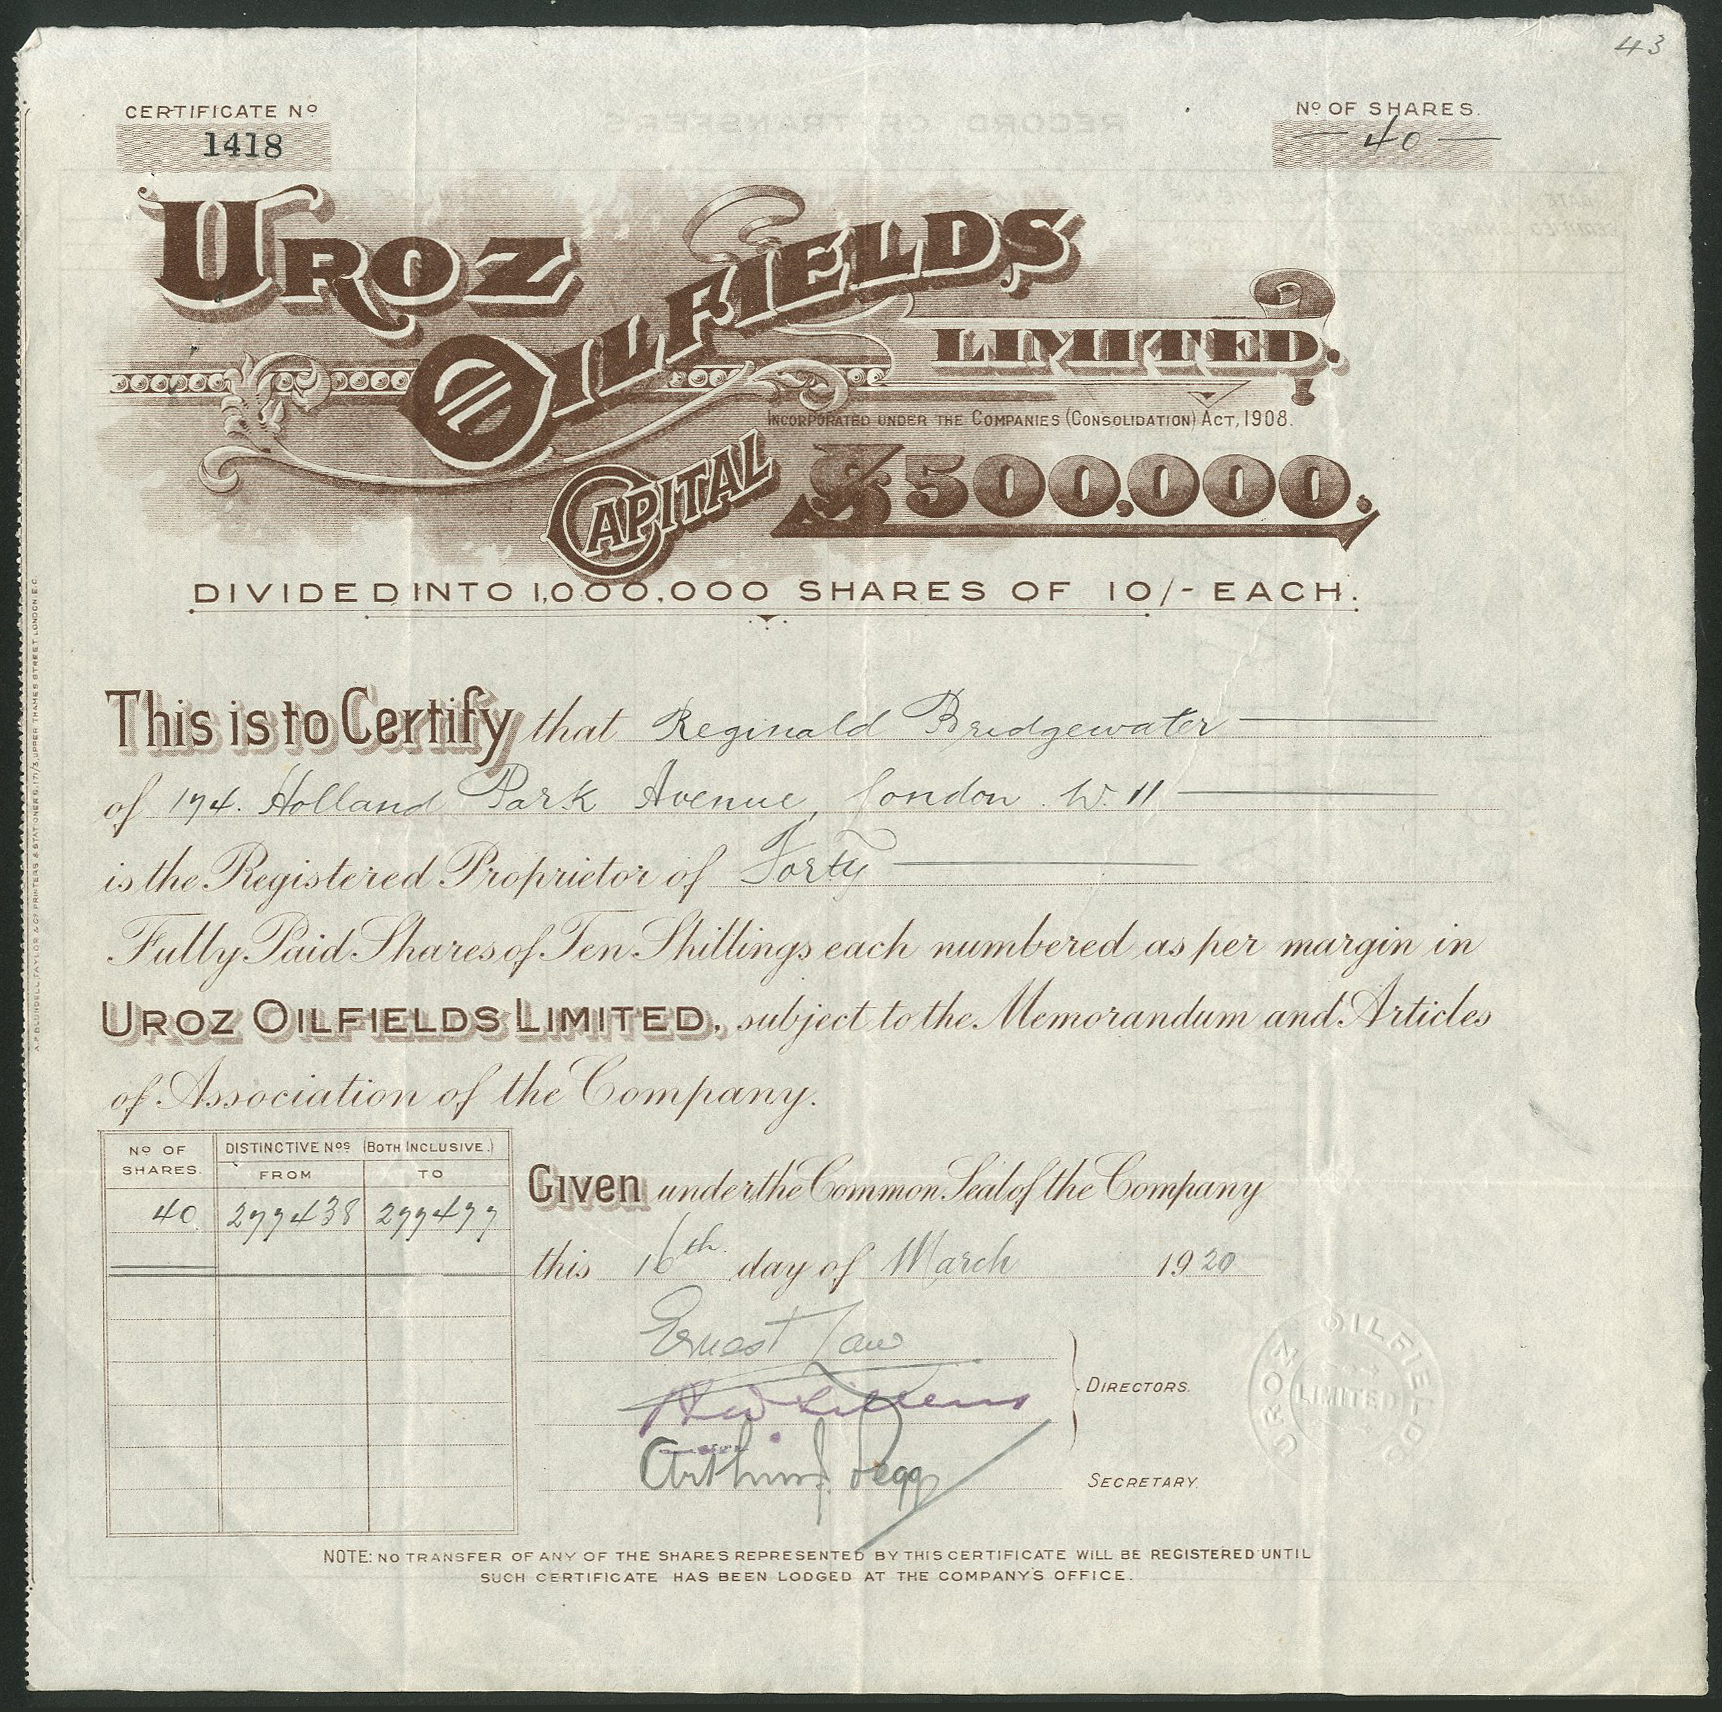 43
CERTIFICATE Nº
1418
Nº OF SHARES.
40
UROZ
OILFIELDS
LIMITED.
INCORPORATED UNDER THE COMPANIES (CONSOLIDATION) ACT, 1908.
CAPITAL £500,000.
DIVIDED INTO 1,000,000 SHARES OF 10/- EACH.
This is to Certify that Reginald Bridgewater
of 174. Holland Park Avenue, London. W. 11
is the Registered Proprietor of Forty
Fully Paid Shares of Ten Shillings each numbered as per margin in
UROZ OILFIELDS LIMITED, subject to the Memorandum and Articles
of Association of the Company.
Nº OF SHARES. DISTINCTIVE Nºs (BOTH INCLUSIVE.)
FROM TO
40 277438 277477
GIVEN under the Common Seal of the Company
this 16th day of March 1920
Ernest Law
DIRECTORS.
Arthur J. Pegg
SECRETARY.
UROZ OILFIELDS
LIMITED
NOTE: NO TRANSFER OF ANY OF THE SHARES REPRESENTED BY THIS CERTIFICATE WILL BE REGISTERED UNTIL
SUCH CERTIFICATE HAS BEEN LODGED AT THE COMPANY'S OFFICE.
A. P. BLUNDELL, TAYLOR & Cº PRINTERS & STATIONERS, 171/3, UPPER THAMES STREET, LONDON. E.C.